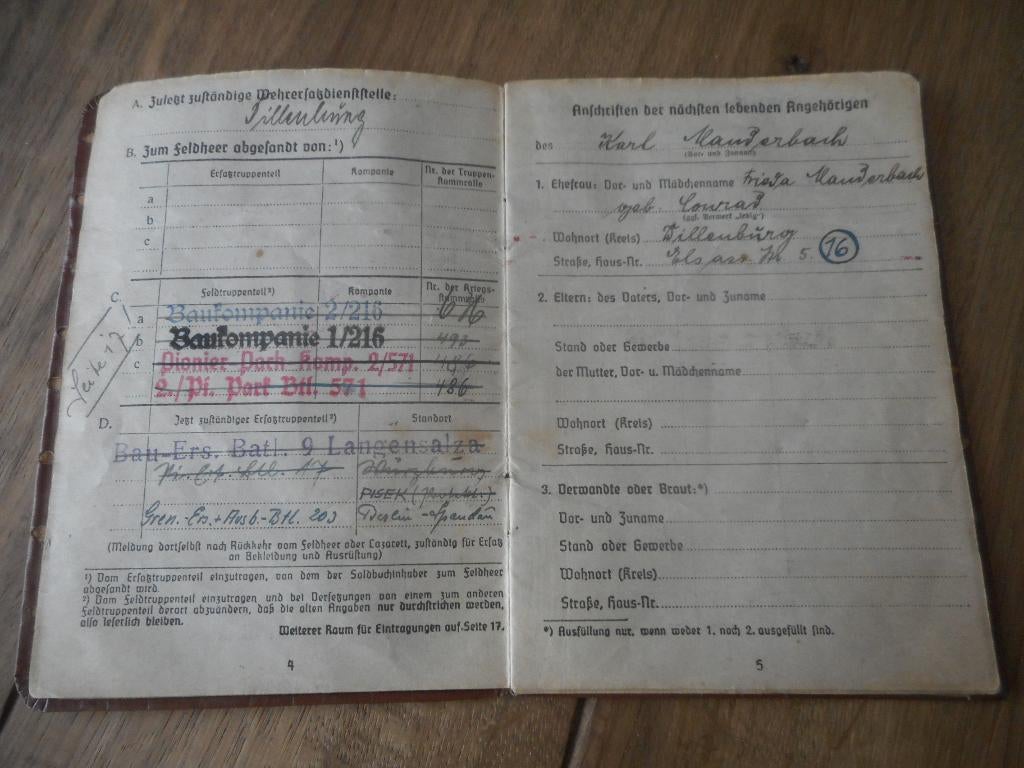 A. Zuletzt zuständige Wehrersatzdienststelle:
Dillenburg
B. Zum Feldheer abgesandt von:¹)
Ersatztruppenteil Kompanie Nr. der Truppen-
stammrolle
a
b
c
C. Feldtruppenteil²) Kompanie Nr. der Kriegs-
stammrolle
a Baukompanie 2/216
b Baukompanie 1/216 493
c Pionier Park Komp. 2/571 486
2./Pi. Park Btl. 571 486
Seite 17
D. Jetzt zuständiger Ersatztruppenteil²) Standort
Bau-Ers. Batl. 9 Langensalza
Pi. Ers. Btl. 17 Würzburg
PISEK
Gren.-Ers.+Ausb.-Btl. 203 Berlin-Spandau
(Meldung dortselbst nach Rückkehr vom Feldheer oder Lazarett, zuständig für Ersatz
an Bekleidung und Ausrüstung)
¹) Vom Ersatztruppenteil einzutragen, von dem der Soldbuchinhaber zum Feldheer
abgesandt wird.
²) Vom Feldtruppenteil einzutragen und bei Versetzungen von einem zum anderen
Feldtruppenteil derart abzuändern, daß die alten Angaben nur durchstrichen werden,
also leserlich bleiben.
Weiterer Raum für Eintragungen auf Seite 17.
4
Anschriften der nächsten lebenden Angehörigen
des Karl Manderbach
(Vor- und Zuname)
1. Ehefrau: Vor- und Mädchenname Frieda Manderbach
geb. Conrad
(ggf. Vermerk „ledig“)
Wohnort (Kreis) Dillenburg
Straße, Haus-Nr. 5. 16
2. Eltern: des Vaters, Vor- und Zuname
Stand oder Gewerbe
der Mutter, Vor- u. Mädchenname
Wohnort (Kreis)
Straße, Haus-Nr.
3. Verwandte oder Braut:*)
Vor- und Zuname
Stand oder Gewerbe
Wohnort (Kreis)
Straße, Haus-Nr.
*) Ausfüllung nur, wenn weder 1. noch 2. ausgefüllt sind.
5